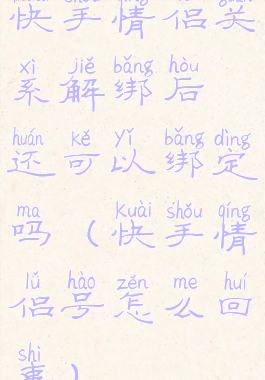 快手情侣关
xì jiě bǎng hòu
系解绑后
huán kě yǐ bǎng dìng
还可以绑定
ma kuài shǒu qíng
吗（快手情
lǚ hào zěn me huí
侣号怎么回
shì
事）